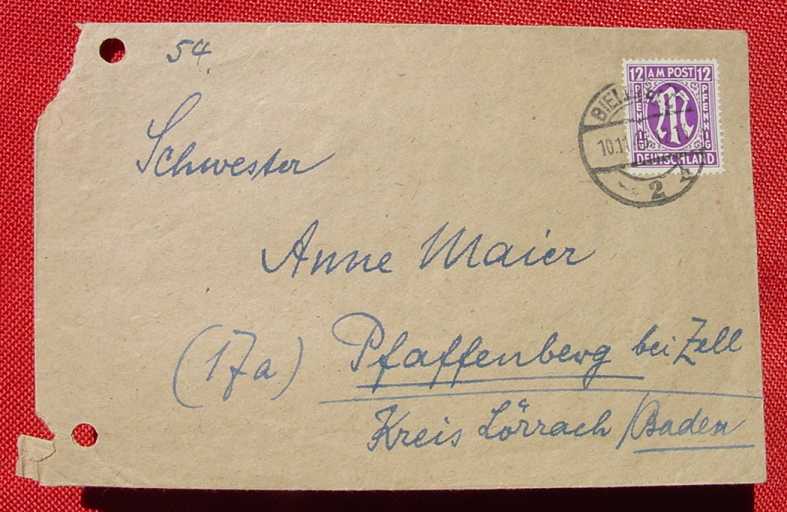 54.
Schwester
Anne Maier
(17a) Pfaffenberg bei Zell
Kreis Lörrach / Baden
12 AM POST 12
PFENNIG PFENNIG
M
DEUTSCHLAND
BIEL
10.11
2